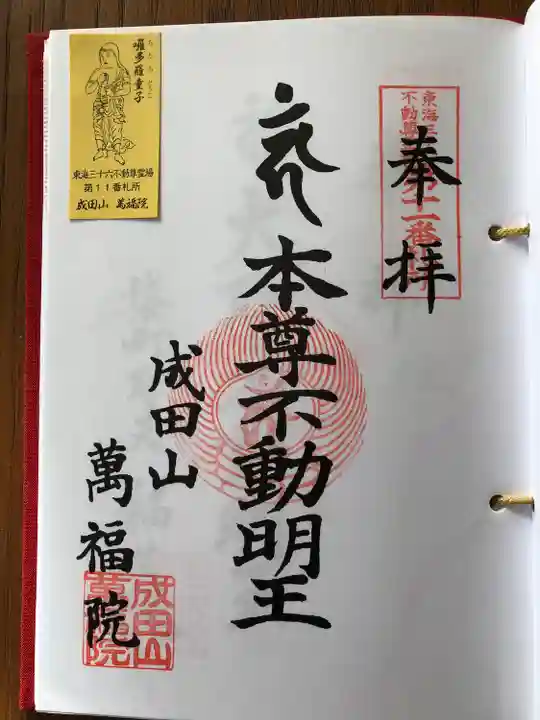 奉拝
東海三
不動尊
十一番
本尊不動明王
成田山
萬福院
成田山
萬福院
囉多羅童子
東海三十六不動尊霊場
第11番札所
成田山 萬福院